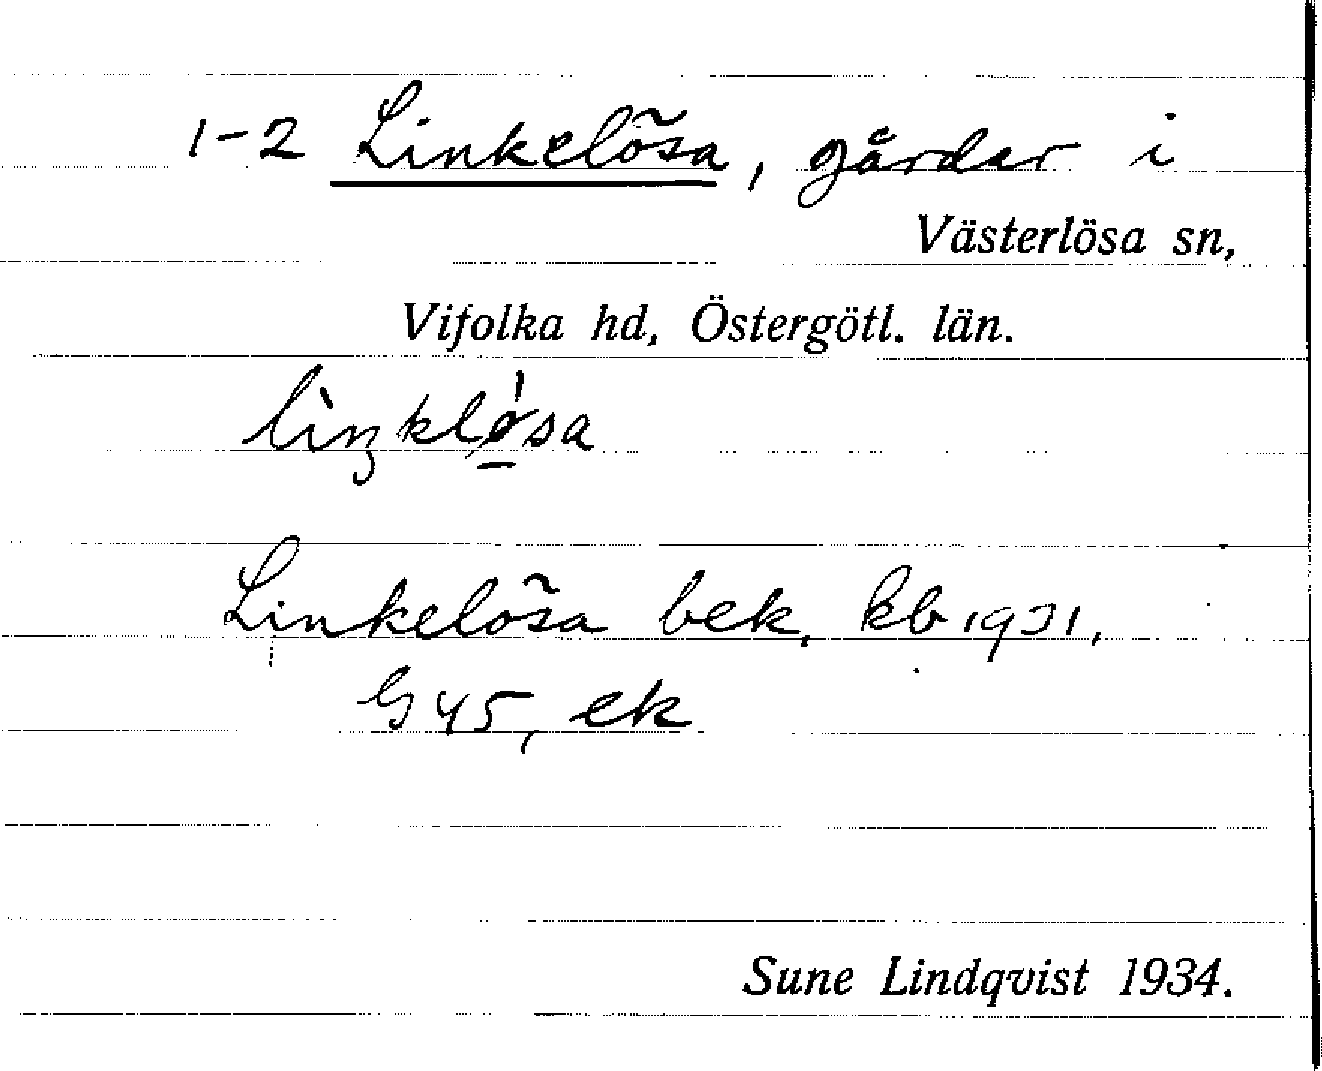 1-2 Linkelösa, gårdar i
Västerlösa sn,
Vifolka hd, Östergötl. län.
lìŋklǿ̱sa
Linkelösa bek, kb 1931,
G 45, ek
Sune Lindqvist 1934.